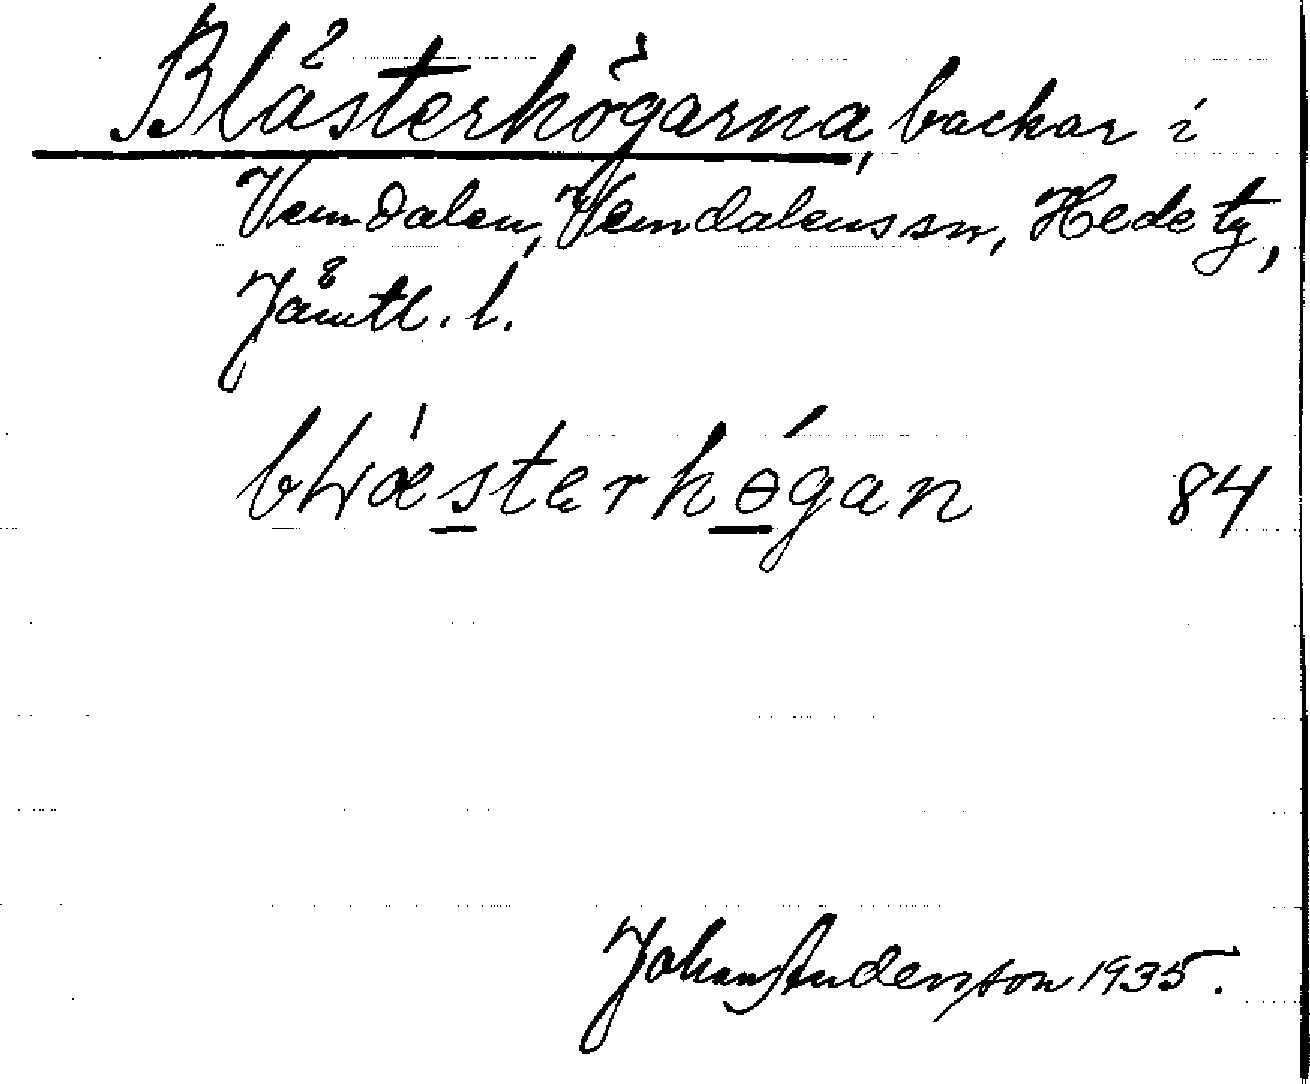 Blästerhögarna, backar i
Vemdalen, Vemdalens sn, Hede tg,
Jämtl. l.
84
Johan Andersson 1935.